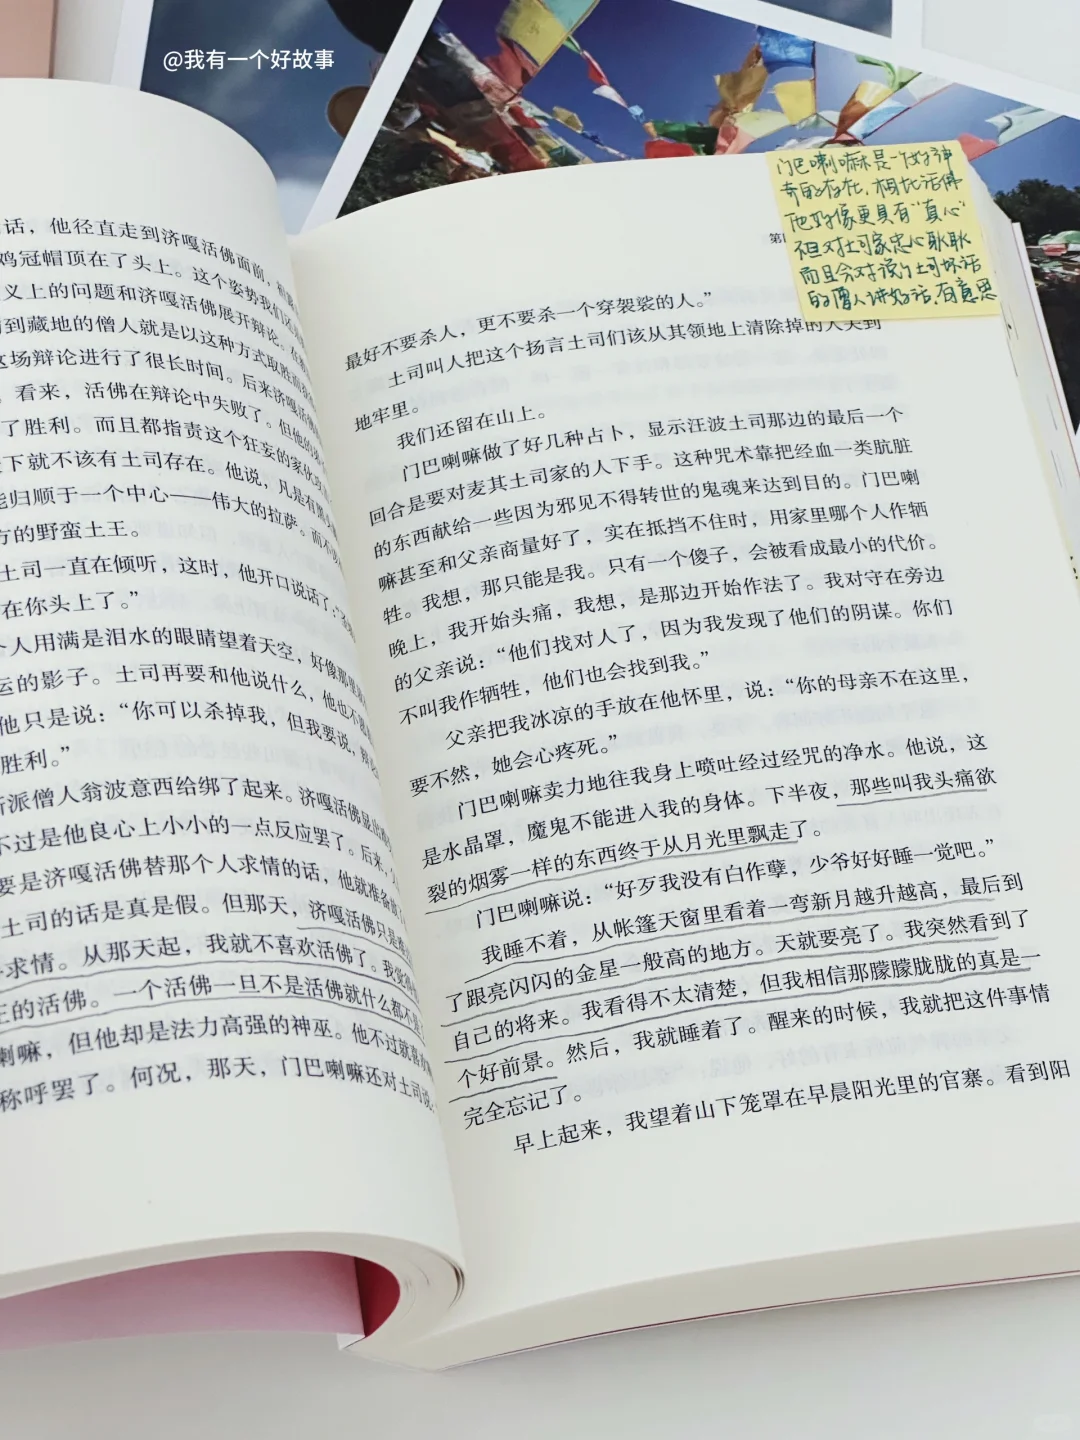 @我有一个好故事
话，他径直走到济嘎活佛面前，
鸡冠帽顶在了头上。这个姿势我们
义上的问题和济嘎活佛展开辩论。在
到藏地的僧人就是以这种方式取胜而
这场辩论进行了很长时间。后来济嘎活
。看来，活佛在辩论中失败了。但他的
了胜利。而且都指责这个狂妄的家伙
下就不该有土司存在。他说，凡是有
能归顺于一个中心——伟大的拉萨。而不
方的野蛮土王。
土司一直在倾听，这时，他开口说话了：
在你头上了。”
个人用满是泪水的眼睛望着天空，好像那里
运的影子。土司再要和他说什么，他也不
他只是说：“你可以杀掉我，但我要说，
胜利。”
新派僧人翁波意西给绑了起来。济嘎活佛
不过是他良心上小小的一点反应罢了。后来，
要是济嘎活佛替那个人求情的话，他就准备
土司的话是真是假。但那天，济嘎活佛只是
求情。从那天起，我就不喜欢活佛了。我觉
正的活佛。一个活佛一旦不是活佛就什么都不
喇嘛，但他却是法力高强的神巫。他不过就喜
称呼罢了。何况，那天，门巴喇嘛还对土司说：
门巴喇嘛是一个好神
奇的存在，相比活佛
他好像更具有“真心”
不但对土司家忠心耿耿
而且会对说了土司坏话
的僧人讲好话，有意思
第
最好不要杀人，更不要杀一个穿袈裟的人。”
土司叫人把这个扬言土司们该从其领地上清除掉的人关到
地牢里。
我们还留在山上。
门巴喇嘛做了好几种占卜，显示汪波土司那边的最后一个
回合是要对麦其土司家的人下手。这种咒术靠把经血一类肮脏
的东西献给一些因为邪见不得转世的鬼魂来达到目的。门巴喇
嘛甚至和父亲商量好了，实在抵挡不住时，用家里哪个人作牺
牲。我想，那只能是我。只有一个傻子，会被看成最小的代价。
晚上，我开始头痛，我想，是那边开始作法了。我对守在旁边
的父亲说：“他们找对人了，因为我发现了他们的阴谋。你们
不叫我作牺牲，他们也会找到我。”
父亲把我冰凉的手放在他怀里，说：“你的母亲不在这里，
要不然，她会心疼死。”
门巴喇嘛卖力地往我身上喷吐经过经咒的净水。他说，这
是水晶罩，魔鬼不能进入我的身体。下半夜，那些叫我头痛欲
裂的烟雾一样的东西终于从月光里飘走了。
门巴喇嘛说：“好歹我没有白作孽，少爷好好睡一觉吧。”
我睡不着，从帐篷天窗里看着一弯新月越升越高，最后到
了跟亮闪闪的金星一般高的地方。天就要亮了。我突然看到了
自己的将来。我看得不太清楚，但我相信那朦朦胧胧的真是一
个好前景。然后，我就睡着了。醒来的时候，我就把这件事情
完全忘记了。
早上起来，我望着山下笼罩在早晨阳光里的官寨。看到阳